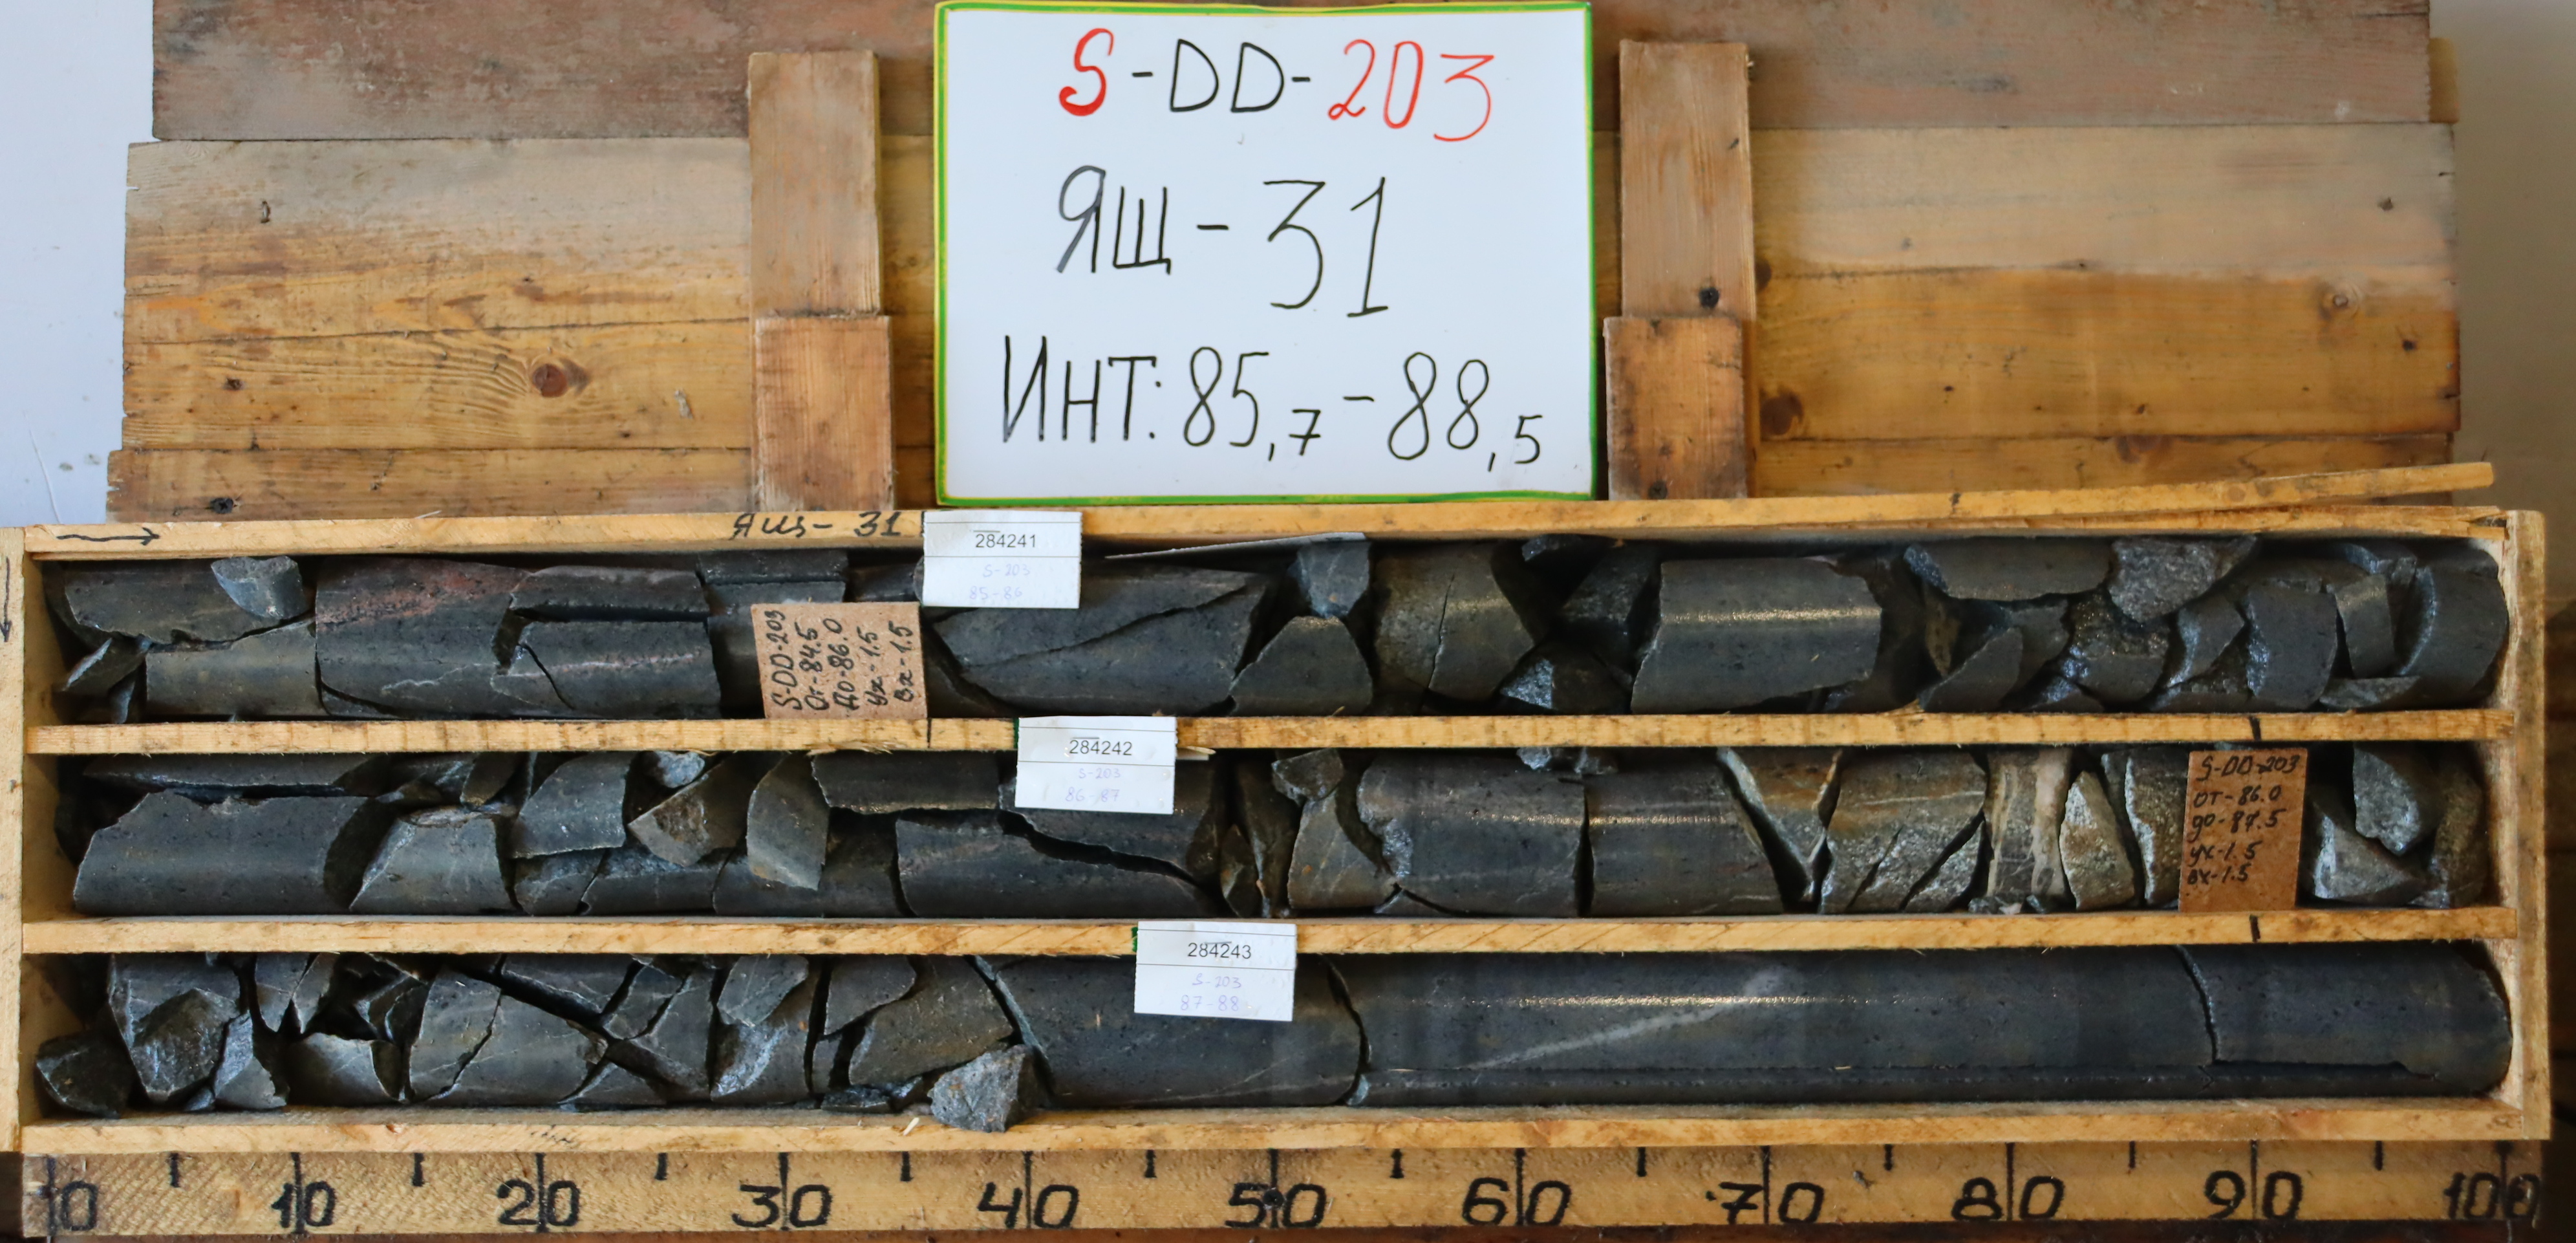 S-DD-203
ЯЩ-31
ИНТ: 85,7-88,5
Ящ- 31
284241
S-203
85-86
S-DD-203
От-84.5
До-86.0
Ух-1.5
Вх-1.5
284242
S-203
86-87
S-DD-203
от-86.0
до-87.5
ух-1.5
вх-1.5
284243
S-203
87-88
0 10 20 30 40 50 60 70 80 90 100